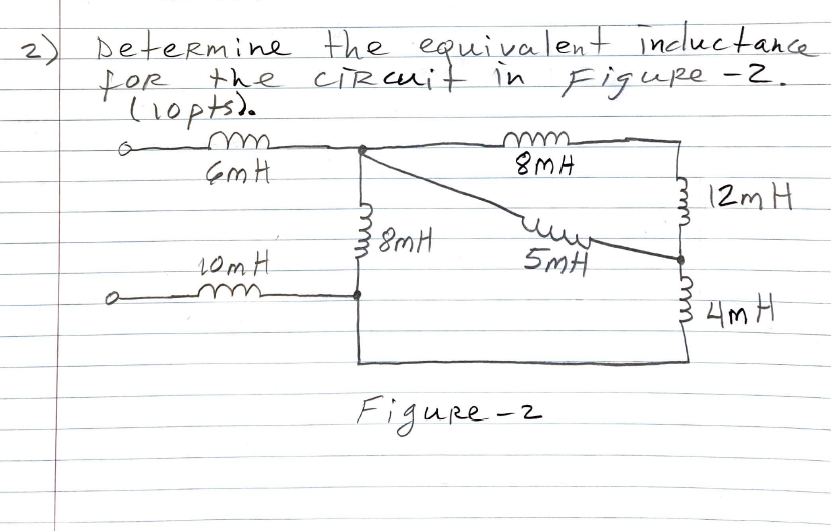 2) Determine the equivalent inductance
for the circuit in Figure-2.
(10pts).
6mH
8mH
12mH
8mH
5mH
10mH
4mH
Figure-2